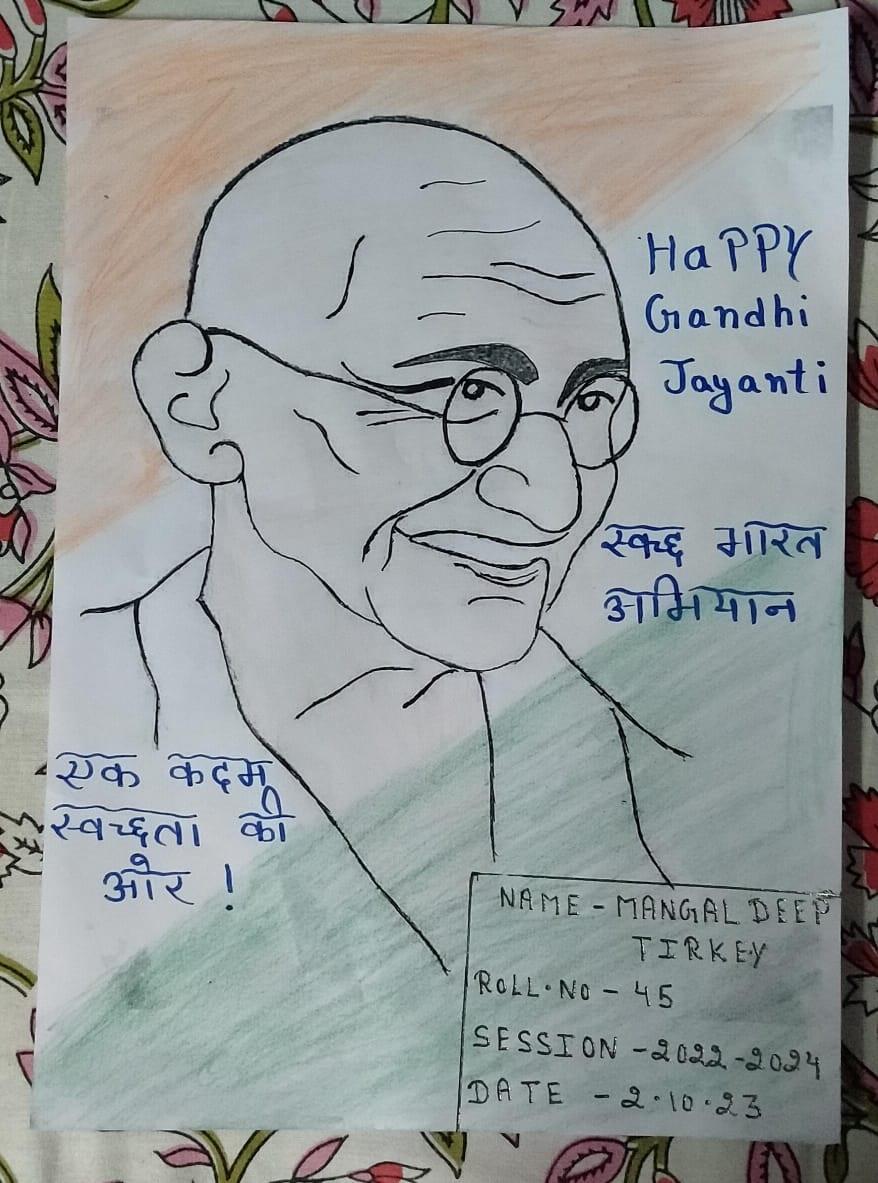 HaPPY
Gandhi
Jayanti
स्वच्छ भारत
अभियान
एक कदम
स्वच्छता की
ओर !
NAME - MANGAL DEEP
TIRKEY
ROLL.NO - 45
SESSION - 2022-2024
DATE - 2.10.23